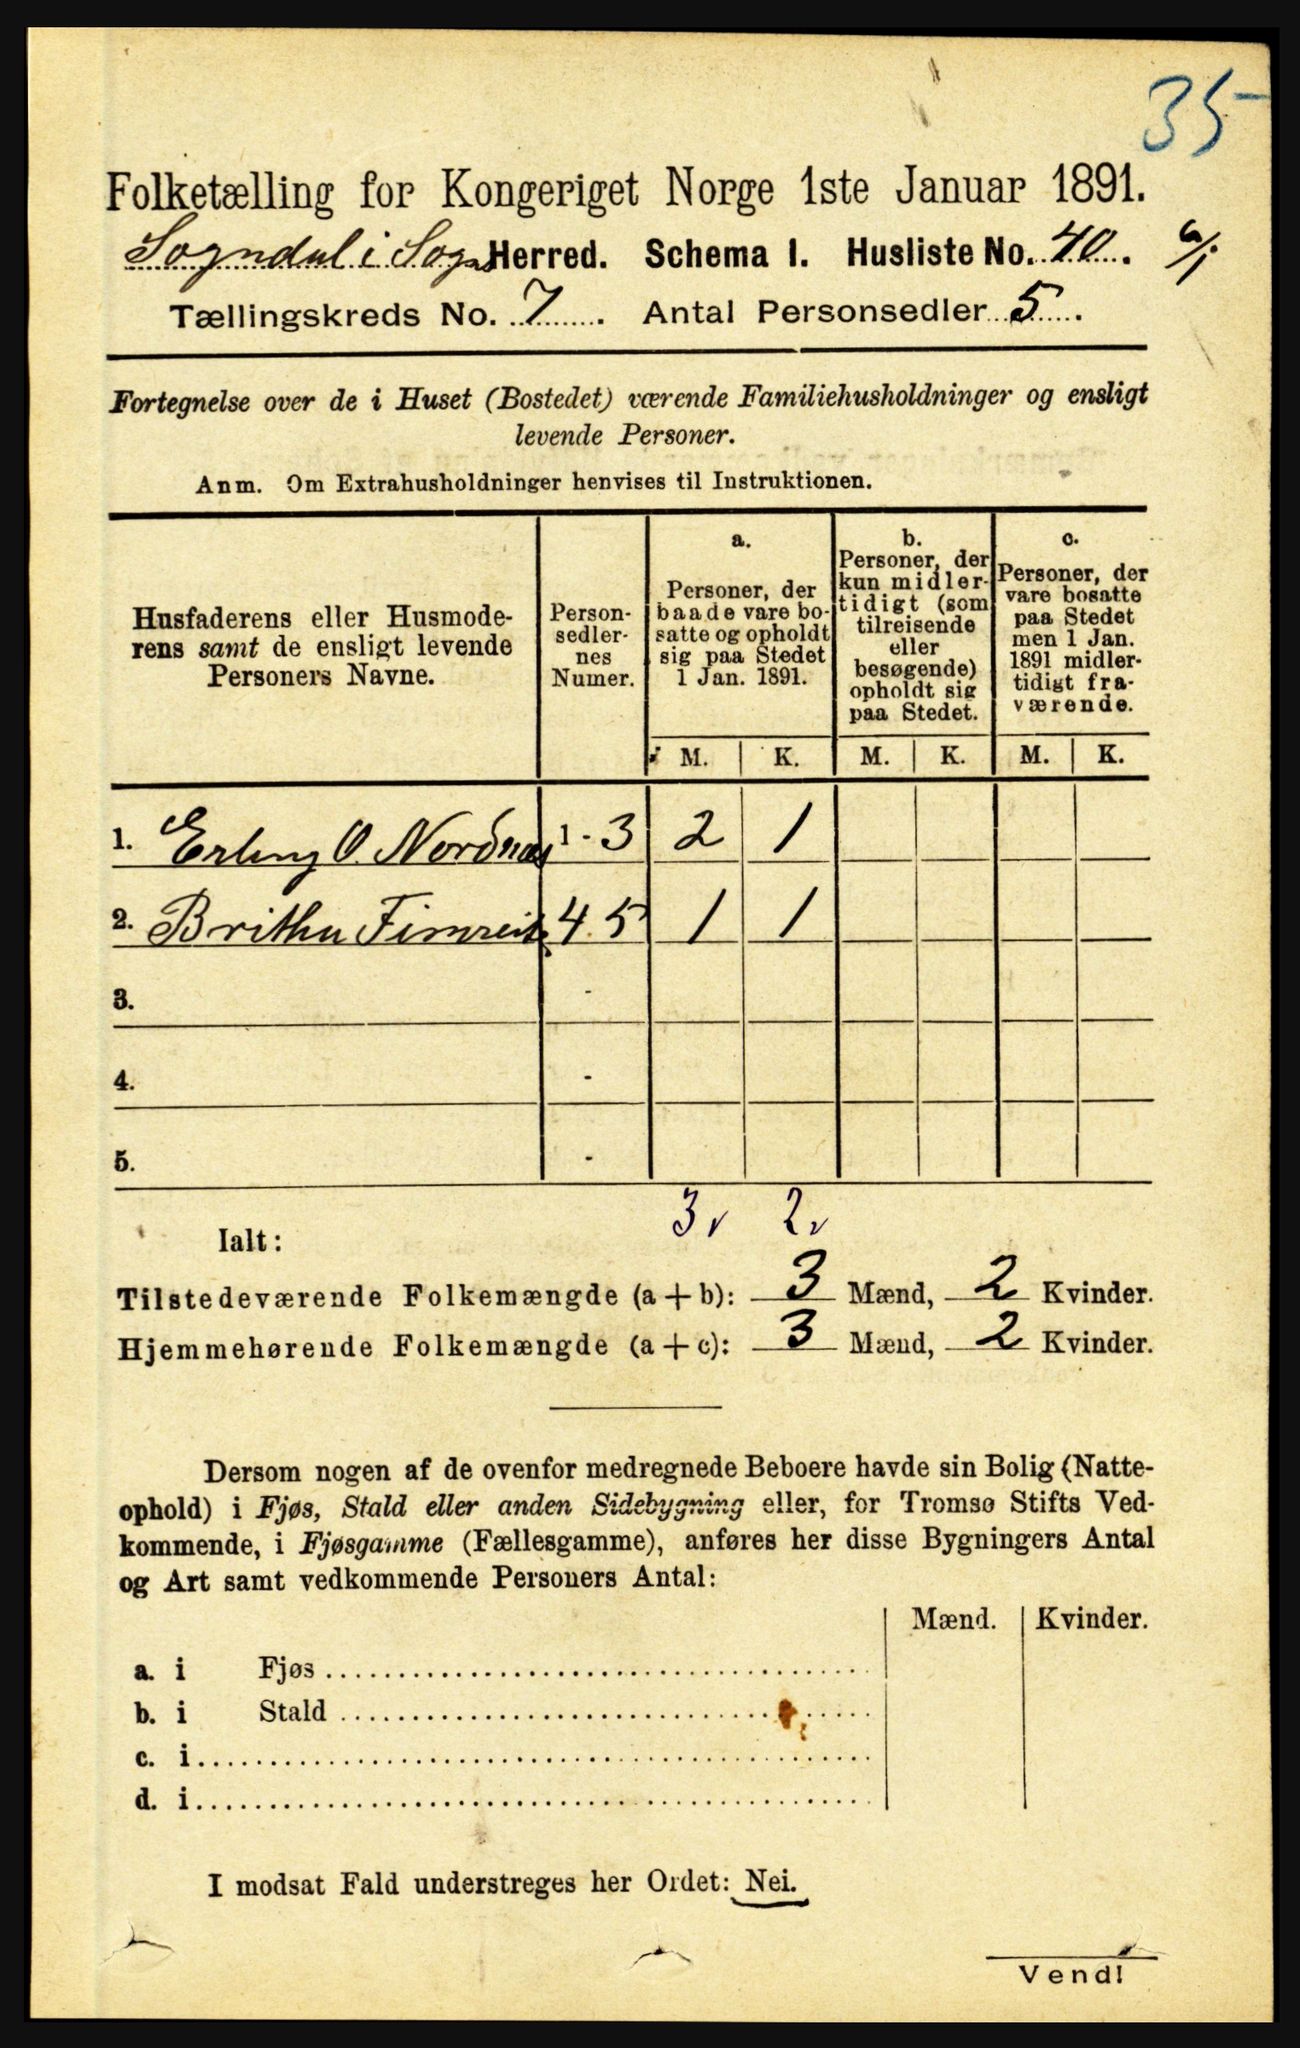 35
Folketælling for Kongeriget Norge 1ste Januar 1891.
Sogndal i Sogn Herred. Schema 1. Husliste No. 40. 6/1
Tællingskreds No. 7. Antal Personsedler 5.
Fortegnelse over de i Huset (Bostedet) værende Familiehusholdninger og ensligt
levende Personer.
Anm. Om Extrahusholdninger henvises til Instruktionen.
Husfaderens eller Husmode-
rens samt de ensligt levende
Personers Navne.
Person-
sedler-
nes
Numer.
a.
Personer, der
baade vare bo-
satte og opholdt
sig paa Stedet
1 Jan. 1891.
b.
Personer, der
kun midler-
tidigt (som
tilreisende
eller
besøgende)
opholdt sig
paa Stedet.
c.
Personer, der
vare bosatte
paa Stedet
men 1 Jan.
1891 midler-
tidigt fra-
værende.
M. K. M. K. M. K.
1. Erling O. Nordnæs 1 - 3 2 1
2. Britha Fimreite 4 5 1 1
3. -
4. -
5. -
3 v 2 v
Ialt:
Tilstedeværende Folkemængde (a + b): 3 Mænd, 2 Kvinder.
Hjemmehørende Folkemængde (a + c): 3 Mænd, 2 Kvinder.
Dersom nogen af de ovenfor medregnede Beboere havde sin Bolig (Natte-
ophold) i Fjøs, Stald eller anden Sidebygning eller, for Tromsø Stifts Ved-
kommende, i Fjøsgamme (Fællesgamme), anføres her disse Bygningers Antal
og Art samt vedkommende Personers Antal:
Mænd. Kvinder.
a. i Fjøs
b. i Stald
c. i
d. i
I modsat Fald understreges her Ordet: Nei.
Vend!